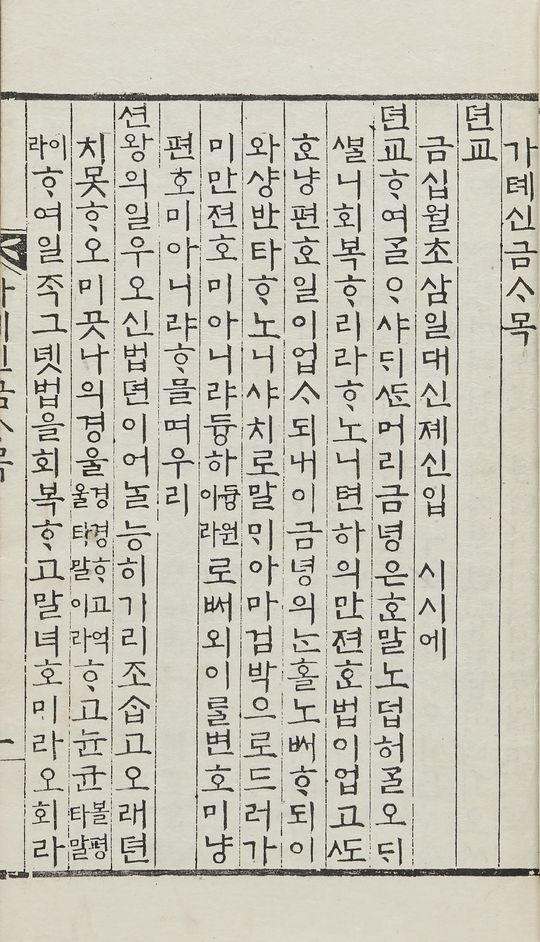 가톄신금ᄉᆞ목
뎐교
금십월초삼일대신졔신입 시시에
뎐교ᄒᆞ여ᄀᆞᆯᄋᆞ샤ᄃᆡ 머리금녕은호말노덥허ᄀᆞᆯ오ᄃᆡ
ᄲᆞᆯ니회복ᄒᆞ리라ᄒᆞ노니텬하의만젼호법이업고ᄯᅩ
호냥편호일이업ᄉᆞ되내이금녕의ᄂᆞᆫ홀노ᄡᅥᄒᆞ되이
와샹반타ᄒᆞ노니샤치로말ᄆᆡ아마검박으로드러가
미만젼호미아니랴듕하듕원이라로ᄡᅥ외이ᄅᆞᆯ변호미냥
편호미아니랴ᄒᆞ믈며우리
션왕의일우오신법뎐이어ᄂᆞᆯ능히가리조ᄉᆞᆸ고오래뎐
치못ᄒᆞ오미곳나의경울경경ᄒᆞ고억울타말이라ᄒᆞ고균균볼평타말
이라ᄒᆞ여일즉그녯법을회복ᄒᆞ고말녀호미라오회라